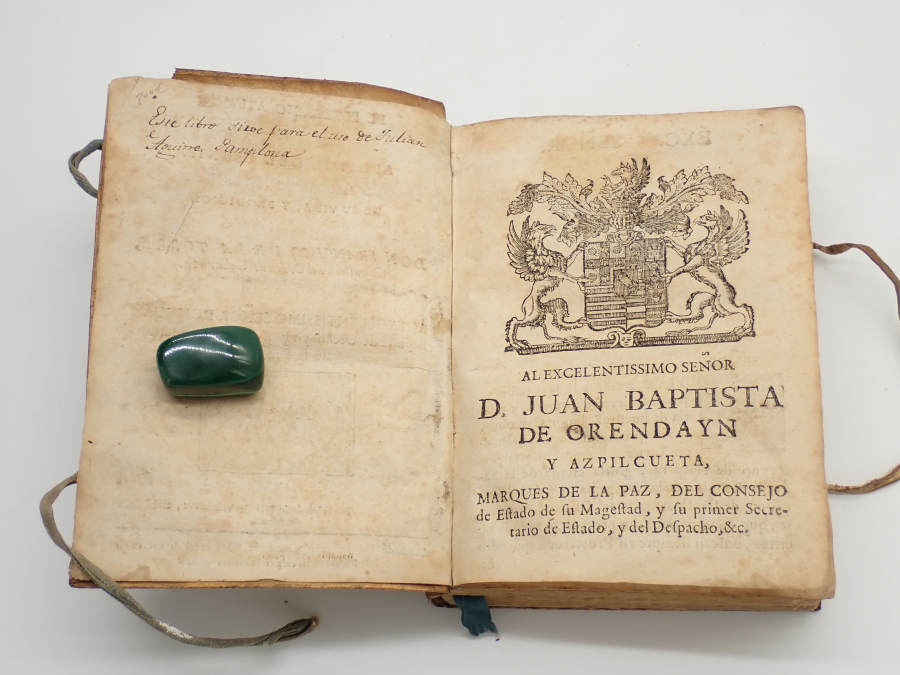 Este libro sirve para el uso de Julian
e
Aguirre Pamplona
AL EXCELENTISSIMO SEÑOR
D. JUAN BAPTISTA
DE ORENDAYN
Y AZPILCUETA,
MARQUES DE LA PAZ, DEL CONSEJO
de Estado de su Magestad, y su primer Secre-
tario de Estado, y del Despacho, &c.